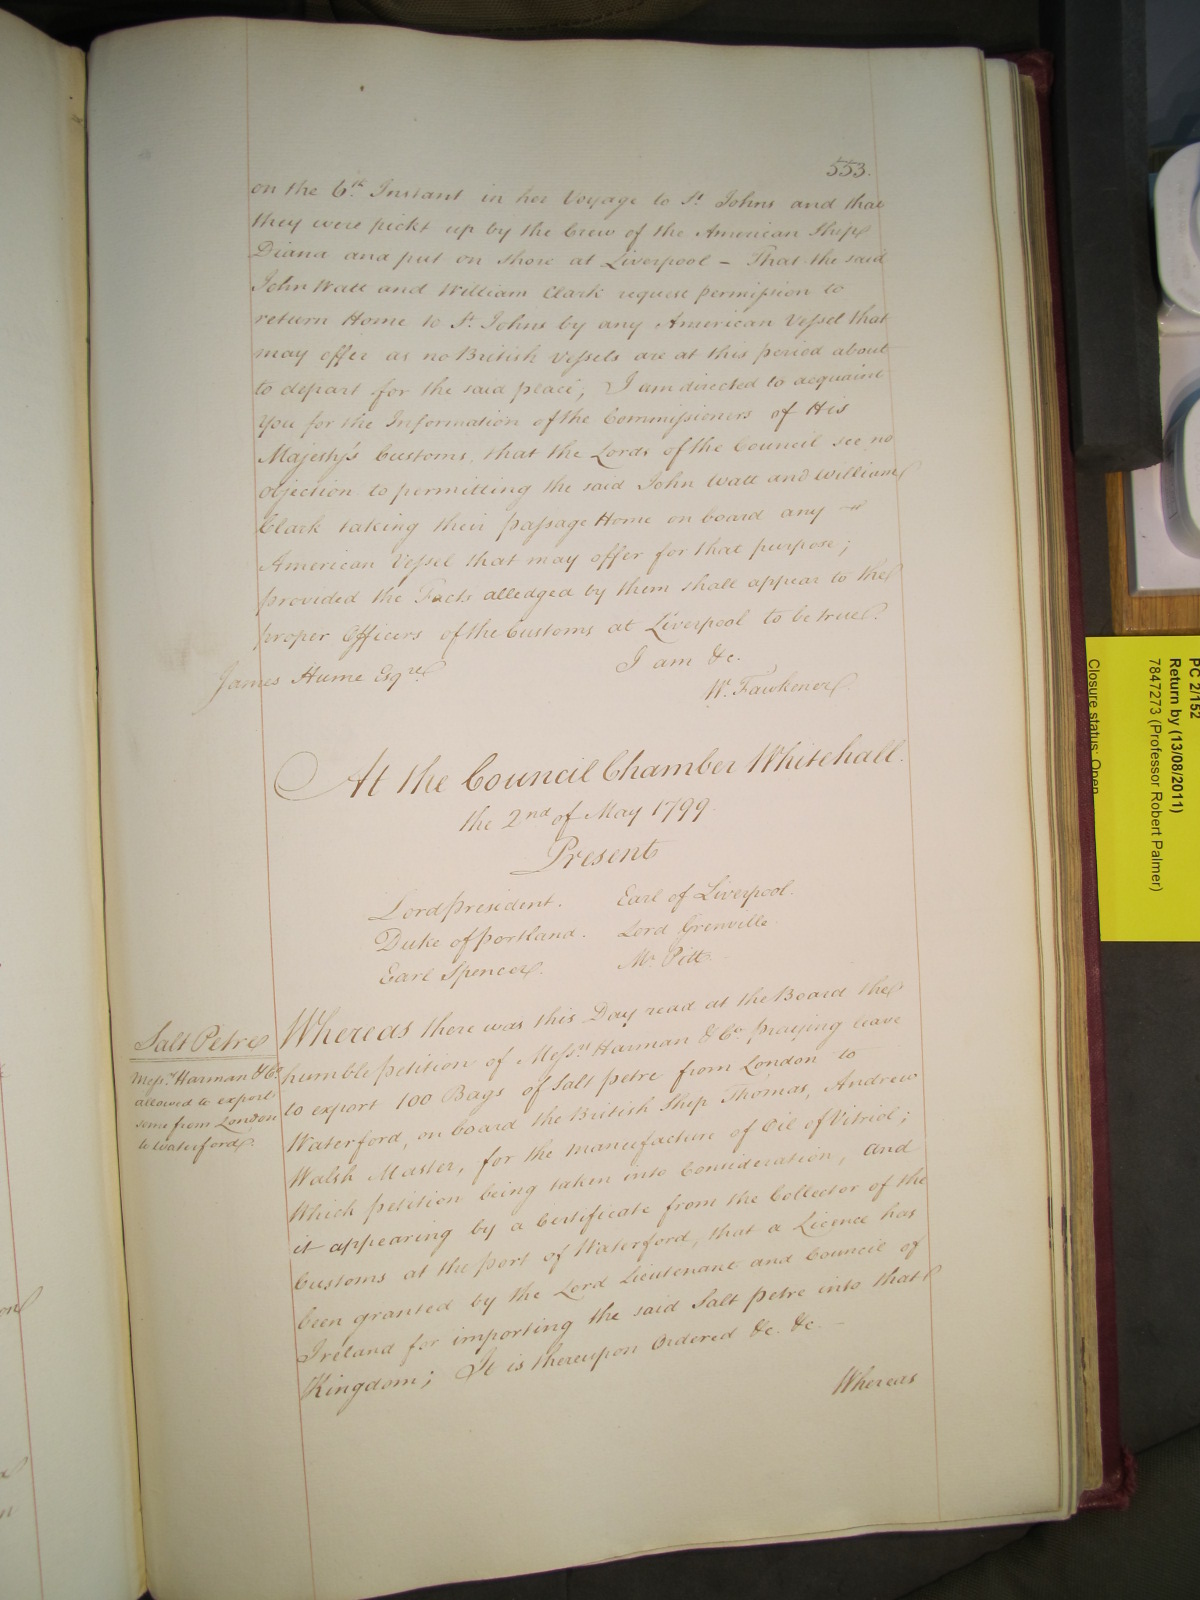 553.
on the 6th Instant in her Voyage to St Johns and that
they were pickt up by the Crew of the American Ship
Diana and put on shore at Liverpool – That the said
John Watt and William Clark request permission to
return Home to St Johns by any American Vessel that
may offer as no British Vessels are at this period about
to depart for the said place; I am directed to acquaint
You for the Information of the Commissioners of His
Majesty's Customs, that the Lords of the Council see no
objection to permitting the said John Watt and William
Clark taking their passage Home on board any
American Vessel that may offer for that purpose;
provided the Facts alledged by them shall appear to the
proper Officers of the Customs at Liverpool to be true.
I am &c.
James Hume Esqre
W. Fawkener.
At the Council Chamber Whitehall.
the 2nd of May 1799.
Present
Lord President. Earl of Liverpool.
Duke of Portland. Lord Grenville
Earl Spencer. Mr. Pitt.
Salt Petre
Messrs Harman & Co.
allowed to export
some from London
to Waterford.
Whereas there was this Day read at the Board the
humble petition of Messrs Harman & Co. praying leave
to export 100 Bags of Salt petre from London to
Waterford, on board the British Ship Thomas, Andrew
Walsh Master, for the manufacture of Oil of Vitriol;
Which petition being taken into Consideration, and
it appearing by a Certificate from the Collector of the
Customs at the port of Waterford, that a Licence has
been granted by the Lord Lieutenant and Council of
Ireland for importing the said Salt petre into that
Kingdom; It is thereupon Ordered &c. &c. –
Whereas
PC 2/152
Return by (13/08/2011)
7847273 (Professor Robert Palmer)
Closure status: Open